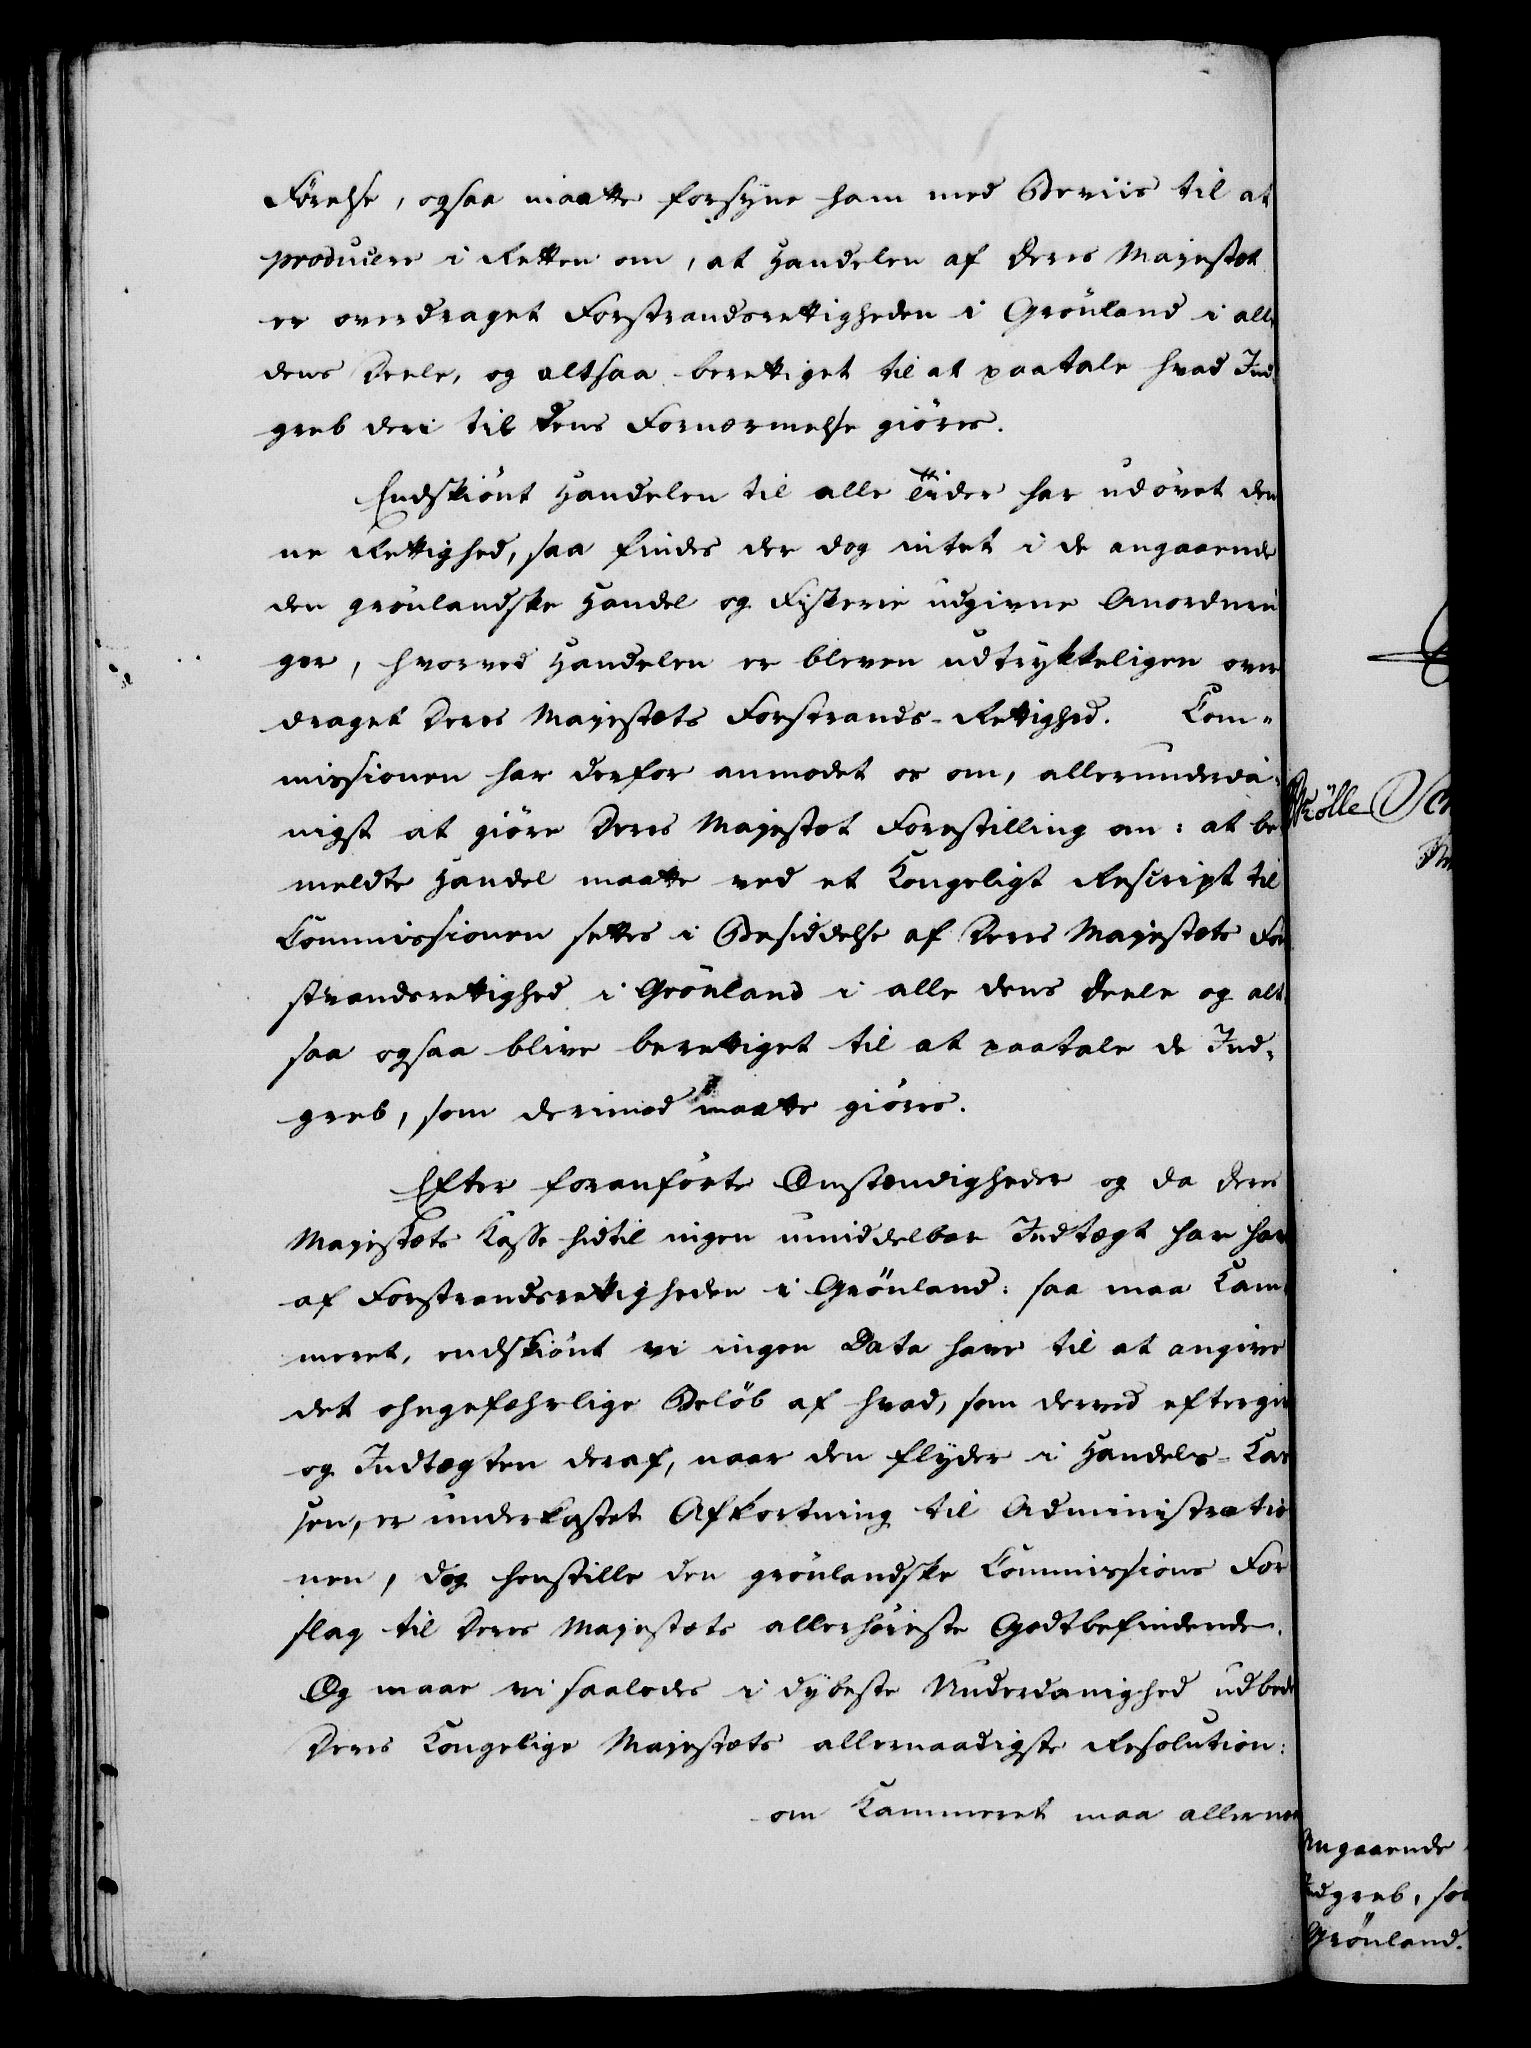 Förelse, ogsaa maatte forsyne ham med Beviis til at
producere i Retten om, at Handelen af Deres Majestæt
er overdraget Forstrandsrettigheden i Grönland i alle
dens Deele, og altsaa berettiget til at paatale hvad Ind
greb deri til dens Fornærmelse giöres.
Endskiönt Handelen til alle Tider har udövet den
ne Rettighed, saa findes der dog intet i de angaaende
den grönlandske Handel og Fiskerie udgivne Anordnin
ger, hvorved Handelen er bleven udtrykkeligen over
draget Deres Majestæts Forstrands-Rettighed. Com-
missionen har derfor anmodet os om, allerunderdå-
nigst at giöre Deres Majestæt Forestilling om: at be
meldte Handel maatte ved et Kongeligt Rescript til
Commissionen settes i Besiddelse af Deres Majestæts For
strandsrettighed i Grönland i alle dens Deele og alt
saa ogsaa blive berettiget til at paatale de Ind-
greb, som derimod maatte giöres.
Efter foranförte Omstændigheder og da Deres
Majestæts Kasse hidtil ingen umiddelbar Indtægt har hav
af Forstrandsrettigheden i Grönland: saa maa Kam
meret, endskiönt vi ingen Data have til at angive
det ohngefæhrlige Belöb af hvad, som derved eftergiv
og Indtægten deraf, naar den flyder i Handels-Kas
sen, er underkastet Afkortning til Administratio
nen, dog henstille den grönlandske Commissions For
slag til Deres Majestæts allerhöieste Godtbefindende.
Og maae vi saaledes i dybeste Underdanighed udbede
Deres Kongelige Majestæts allernaadigste Resolution:
om Kammeret maa allernaa
Angaaende
Indgreb, so
Grönland.